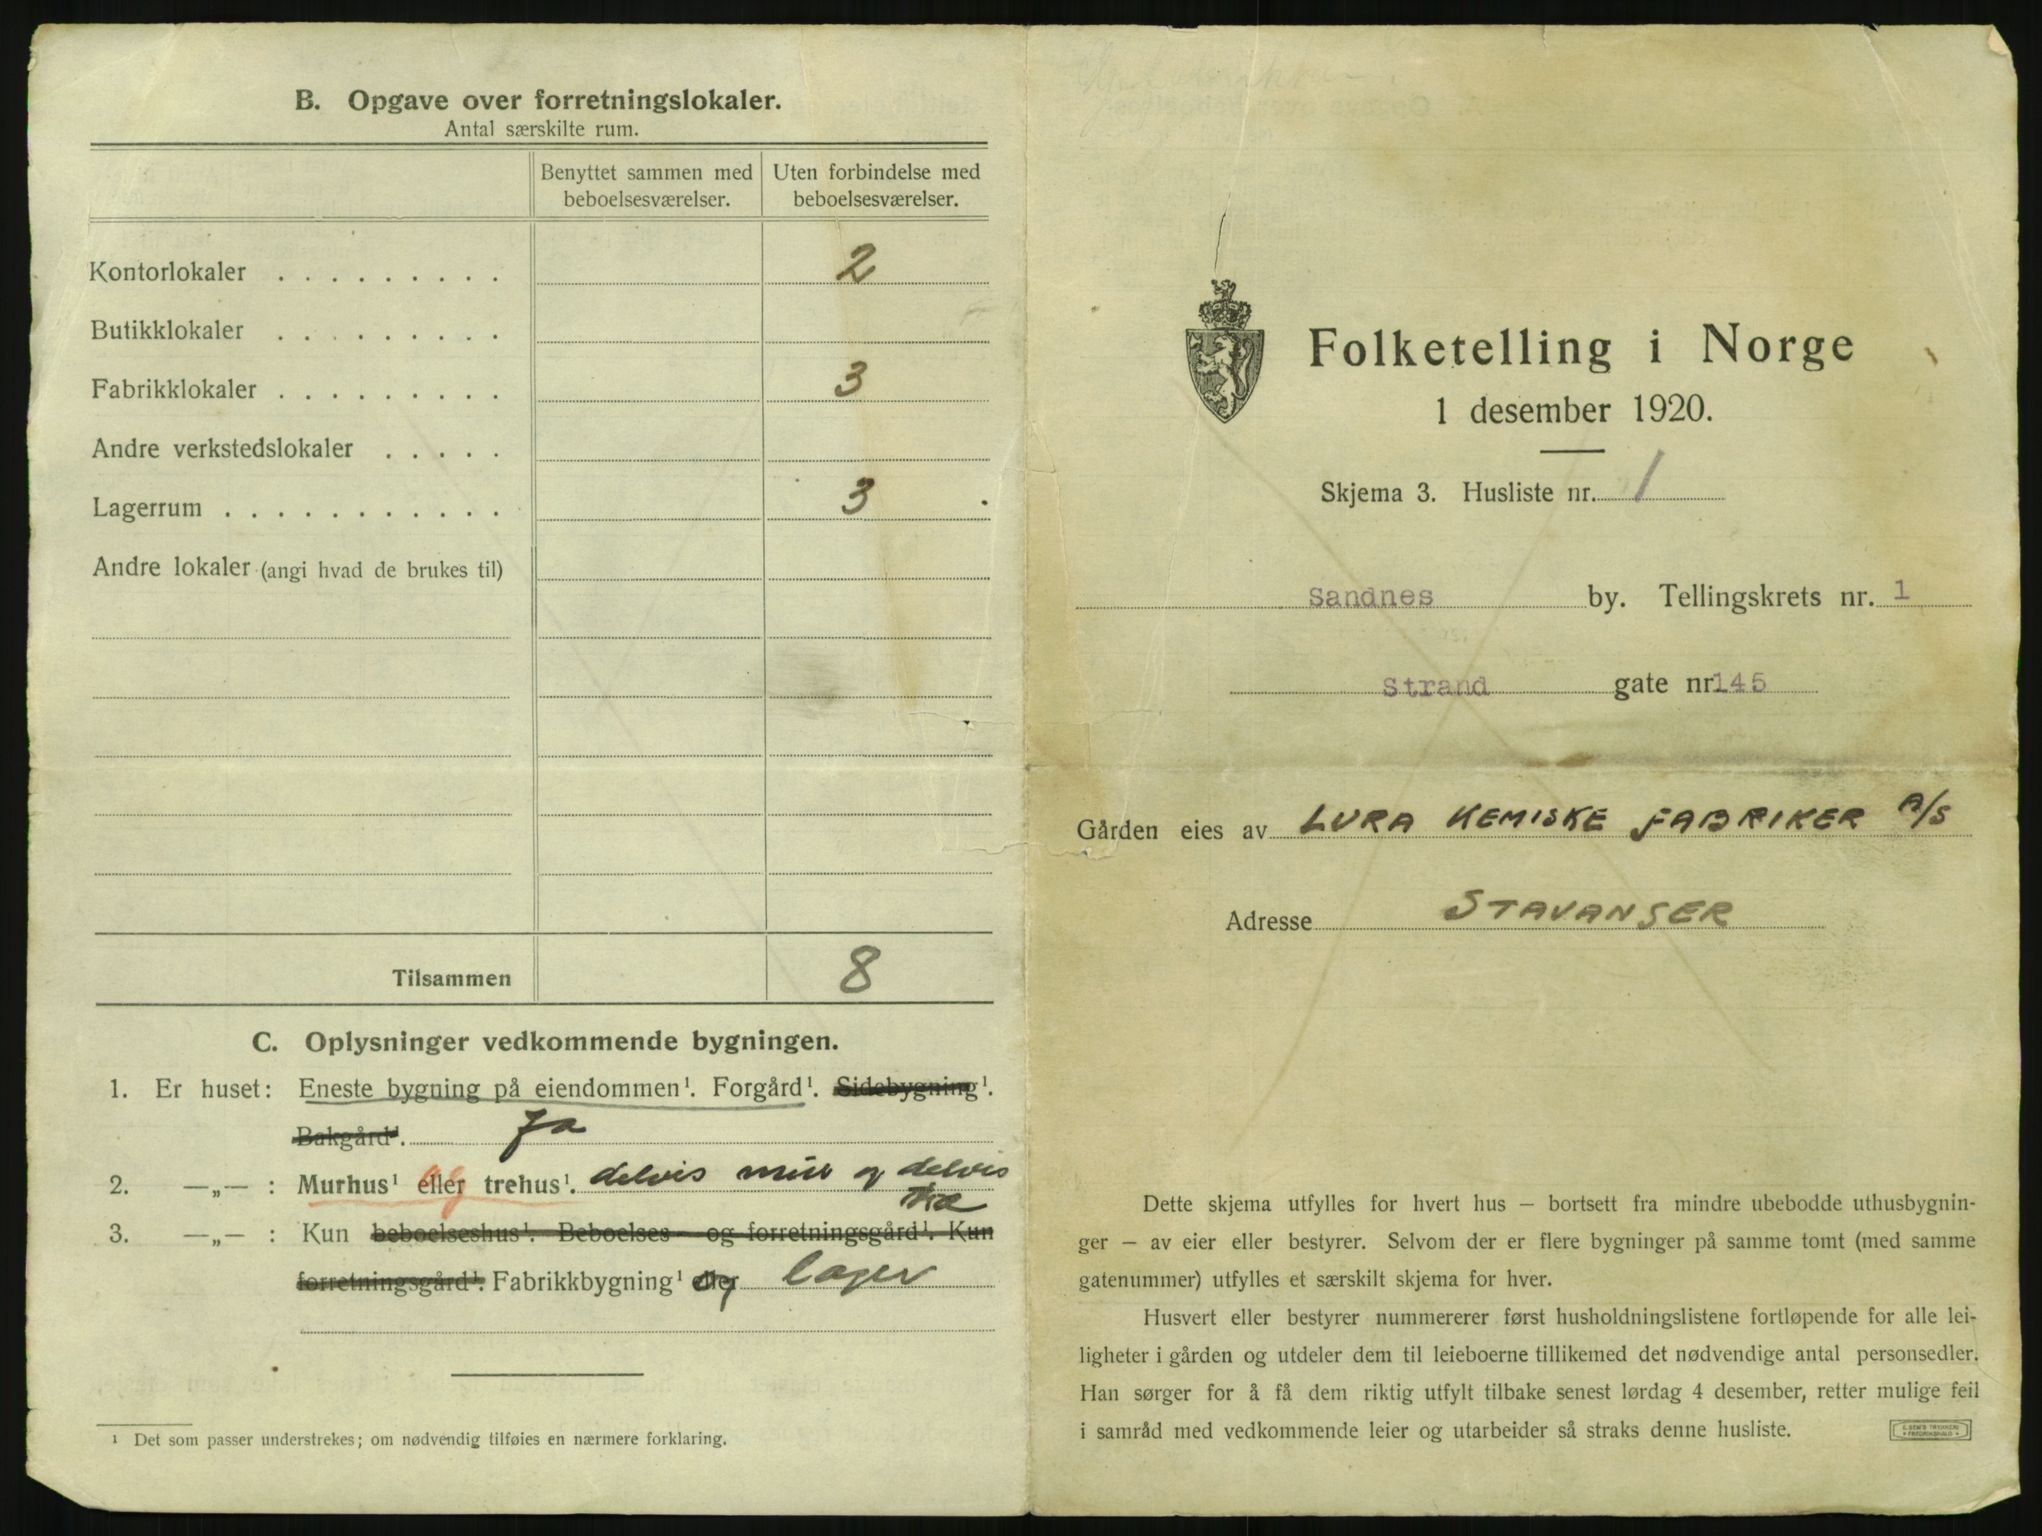 B. Opgave over forretningslokaler.
Antal særskilte rum.
Benyttet sammen med beboelsesværelser.
Uten forbindelse med beboelsesværelser.
Kontorlokaler . . . . . . . . . 2
Butikklokaler . . . . . . . . .
Fabrikklokaler . . . . . . . . . 3
Andre verkstedslokaler . . . . .
Lagerrum . . . . . . . . . . . 3
Andre lokaler (angi hvad de brukes til)
Tilsammen 8
C. Oplysninger vedkommende bygningen.
1. Er huset: Eneste bygning på eiendommen¹. Forgård¹. Sidebygning¹.
Bakgård¹. Ja
2. —„— : Murhus¹ eller og trehus¹. delvis mur og delvis
træ
3. —„— : Kun beboelseshus¹. Beboelses- og forretningsgård¹. Kun
forretningsgård¹. Fabrikkbygning¹ eller og lager
¹ Det som passer understrekes; om nødvendig tilføies en nærmere forklaring.
Folketelling i Norge
1 desember 1920.
Skjema 3. Husliste nr. 1
Sandnes by. Tellingskrets nr. 1
Strand gate nr. 145
Gården eies av LURA KEMISKE FABRIKER A/S
Adresse STAVANGER
Dette skjema utfylles for hvert hus – bortsett fra mindre ubebodde uthusbygnin-
ger – av eier eller bestyrer. Selvom der er flere bygninger på samme tomt (med samme
gatenummer) utfylles et særskilt skjema for hver.
Husvert eller bestyrer nummererer først husholdningslistene fortløpende for alle lei-
ligheter i gården og utdeler dem til leieboerne tillikemed det nødvendige antal personsedler.
Han sørger for å få dem riktig utfylt tilbake senest lørdag 4 desember, retter mulige feil
i samråd med vedkommende leier og utarbeider så straks denne husliste.